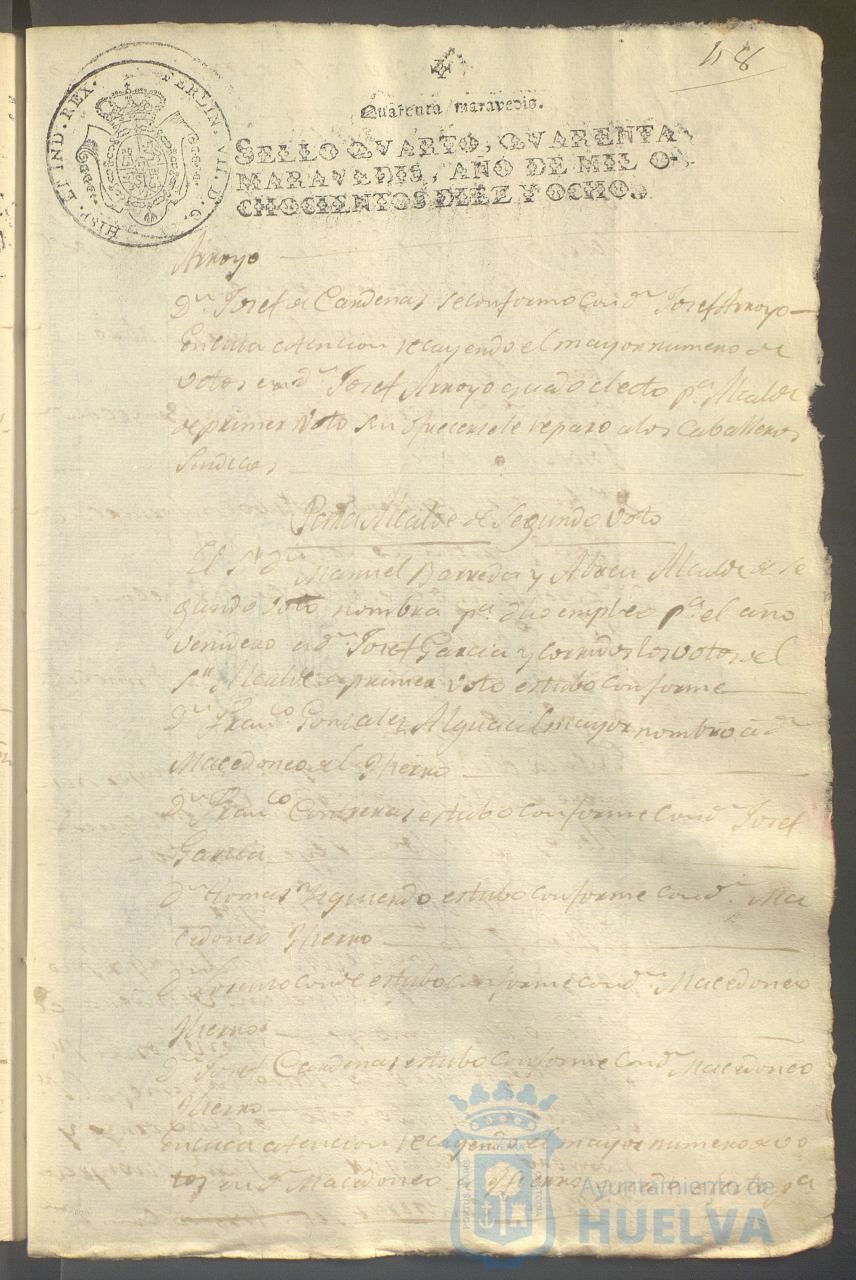 118
HISP. ET IND. REX. FERDIN. VII. D. G.
Quarenta maravedis.
SELLO QVARTO, QVARENTA
MARAVEDIS, AÑO DE MIL O-
CHOCIENTOS DIEZ Y OCHO.
Arroyo
Dn. Josef de Cardenas se conformo con dn. Josef Arroyo
En cuia atencion recayendo el mayor numero de
votos en dn. Josef Arroyo quedo electo pa. Alcalde
de primer Voto sin ofrecersele reparo a los Caballeros
Sindicos
Para Alcalde de Segundo Voto
El Sr. dn. Manuel Barreda y Abreu Alcalde de Se
gundo voto nombra pa. dho empleo pa. el año
venidero a dn. Josef Garcia y corridos los votos el
Sr. Alcalde de primer voto estubo conforme
Dn. Franco. Gonzalez Alguacil mayor nombro a dn.
Macedoneo del Hierro
Dn. Franco. Contreras estubo conforme con dn. Josef
Garcia
Dn. Tomas Izquierdo estubo conforme con dn. Ma
cedoneo Hierro
Dn. Conde estubo conforme con dn. Macedoneo
Hierro
Dn. Josef Cardenas estubo conforme con dn. Macedoneo
Hierro
En cuia atencion recayendo el mayor numero de vo
tos en dn. Macedoneo de Hierro quedo electo pa.
Ayuntamiento de
HUELVA